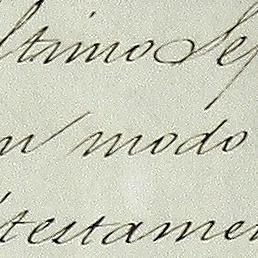 ltimo Se
modo
testame